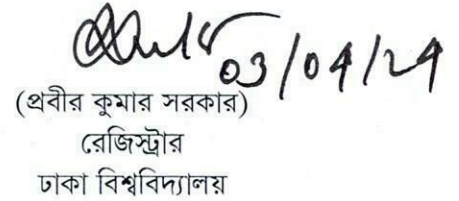 03/04/24
(প্রবীর কুমার সরকার)
রেজিস্ট্রার
ঢাকা বিশ্ববিদ্যালয়